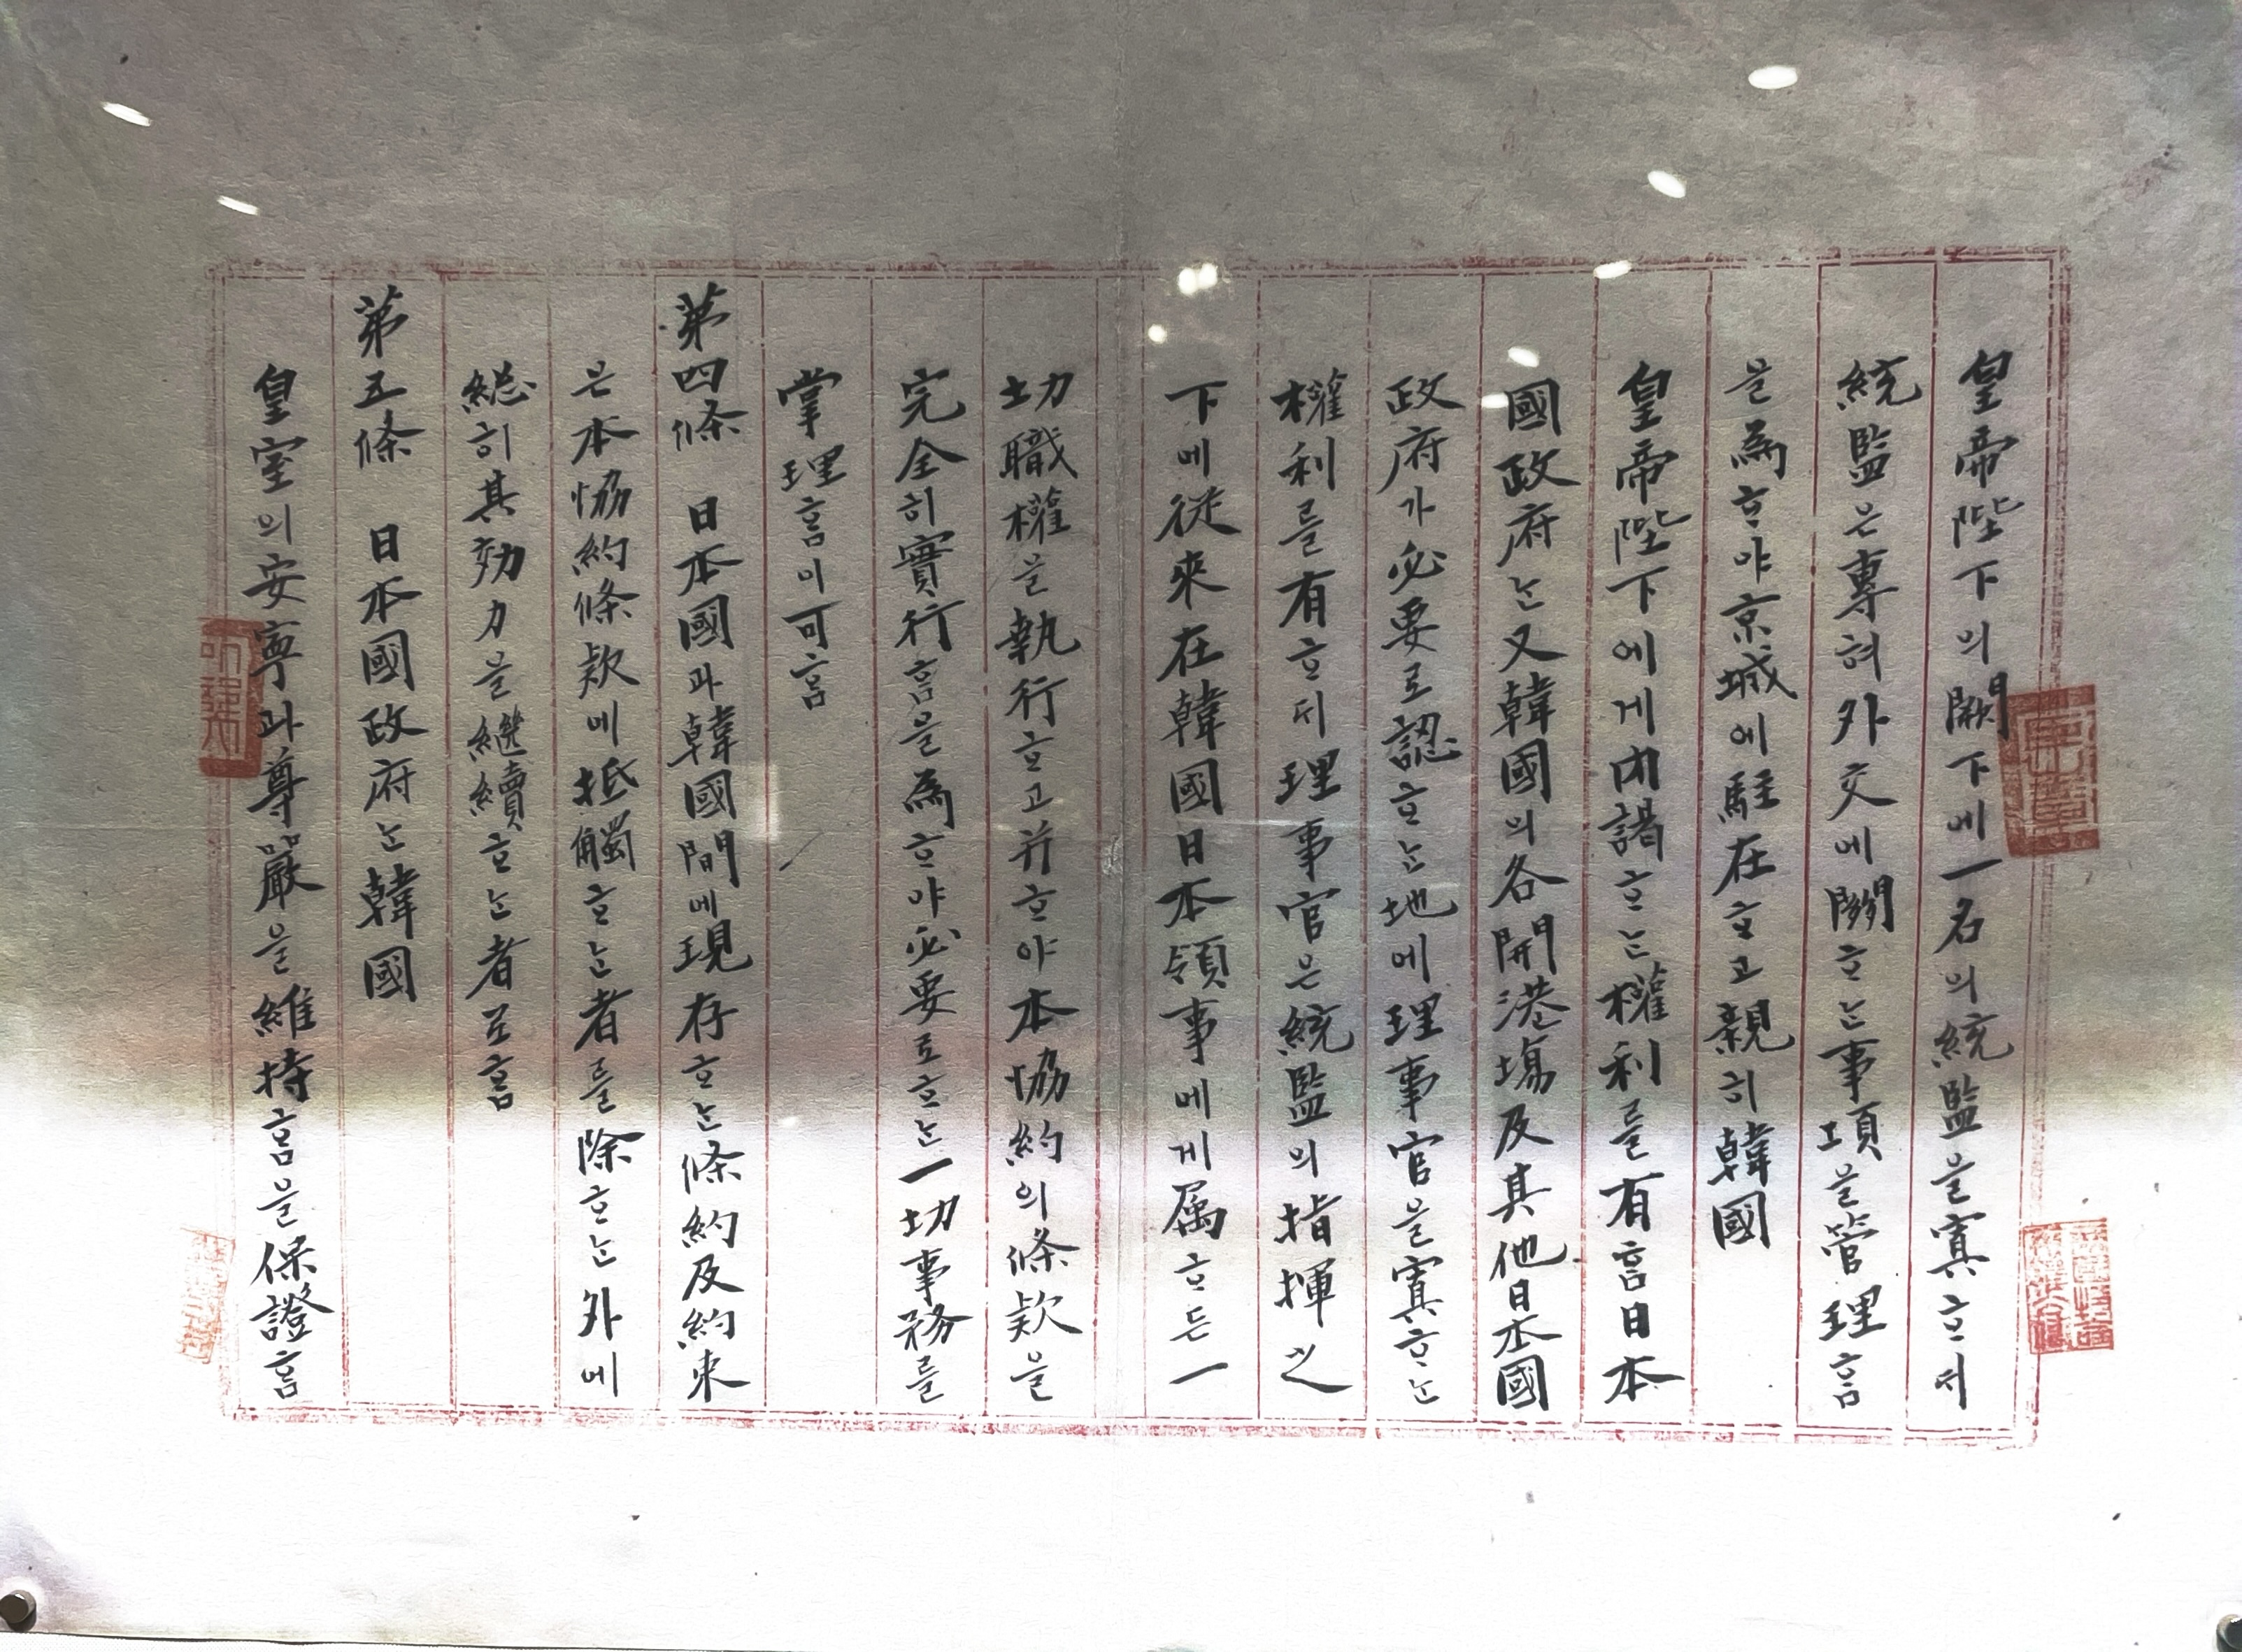 皇帝陛下의闕下에一名의統監을寘호ᄃᆡ
統監은專혀外交에關ᄒᆞᄂᆞᆫ事項을管理홈
을爲ᄒᆞ야京城에駐在ᄒᆞ고親히韓國
皇帝陛下에게內謁ᄒᆞᄂᆞᆫ權利를有홈日本
國政府ᄂᆞᆫ又韓國의各開港場及其他日本國
政府가必要로認ᄒᆞᄂᆞᆫ地에理事官을寘ᄒᆞᄂᆞᆫ
權利를有호ᄃᆡ理事官은統監의指揮之
下에從來在韓國日本領事에게屬ᄒᆞ든一
切職權을執行ᄒᆞ고幷ᄒᆞ야本協約의條款을
完全히實行홈을爲ᄒᆞ야必要로ᄒᆞᄂᆞᆫ一切事務를
掌理홈이可홈
第四條 日本國과韓國間에現存ᄒᆞᄂᆞᆫ條約及約束
은本協約條款에抵觸ᄒᆞᄂᆞᆫ者를除ᄒᆞᄂᆞᆫ外에
總히其効力을繼續ᄒᆞᄂᆞᆫ者로홈
第五條 日本國政府ᄂᆞᆫ韓國
皇室의安寧과尊嚴을維持홈을保證홈